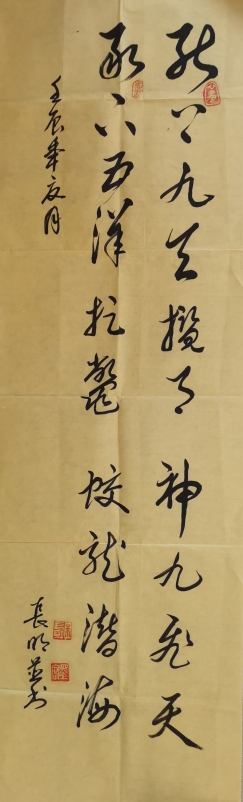 能上九天揽月 神九飞天
敢下五洋捉鳖 蛟龙潜海
壬辰年夏月
長明並书